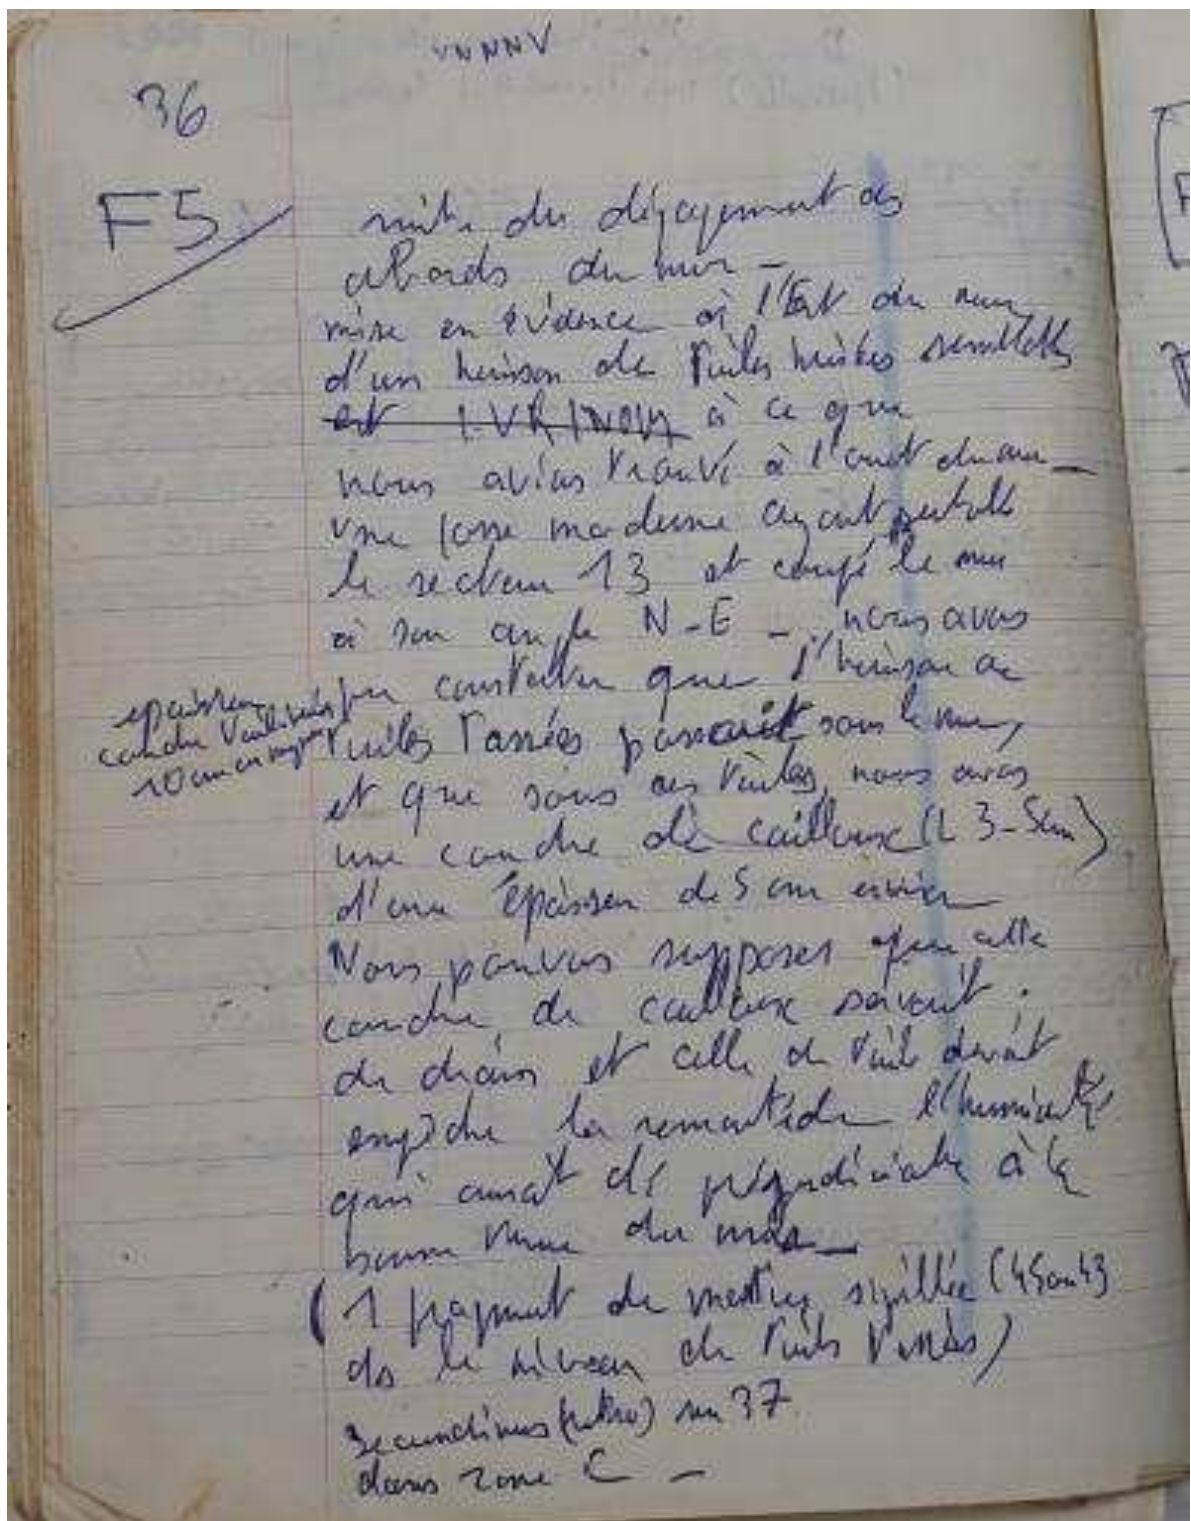 VNNNV
36
F5
suite du dégagement des
abords du mur -
mise en évidence à l'Est du mur
d'un hérisson de tuiles brisées semblables
à ce que
nous avions trouvé à l'ouest du mur -
une fosse moderne ayant perturbé
le secteur 13 et coupé le mur
à son angle N-E - nous avons
pu constater que l'hérisson de
tuiles tassées passait sous le mur,
et que sous ces tuiles, nous avons
une couche de cailloux (L 3-5cm)
d'une épaisseur de 5 cm environ
Nous pouvons supposer que cette
couche de cailloux servait
de drain et celle de tuile devait
empêcher la remontée de l'humidité
qui aurait été préjudiciable à la
bonne tenue du mur -
épaisseur
couche tuiles
10 cm en moyenne
(1 fragment de sigillée (45 ou 43
ds le niveau de tuiles tassées)
Secundinus (retro) sur 37
dans zone C -